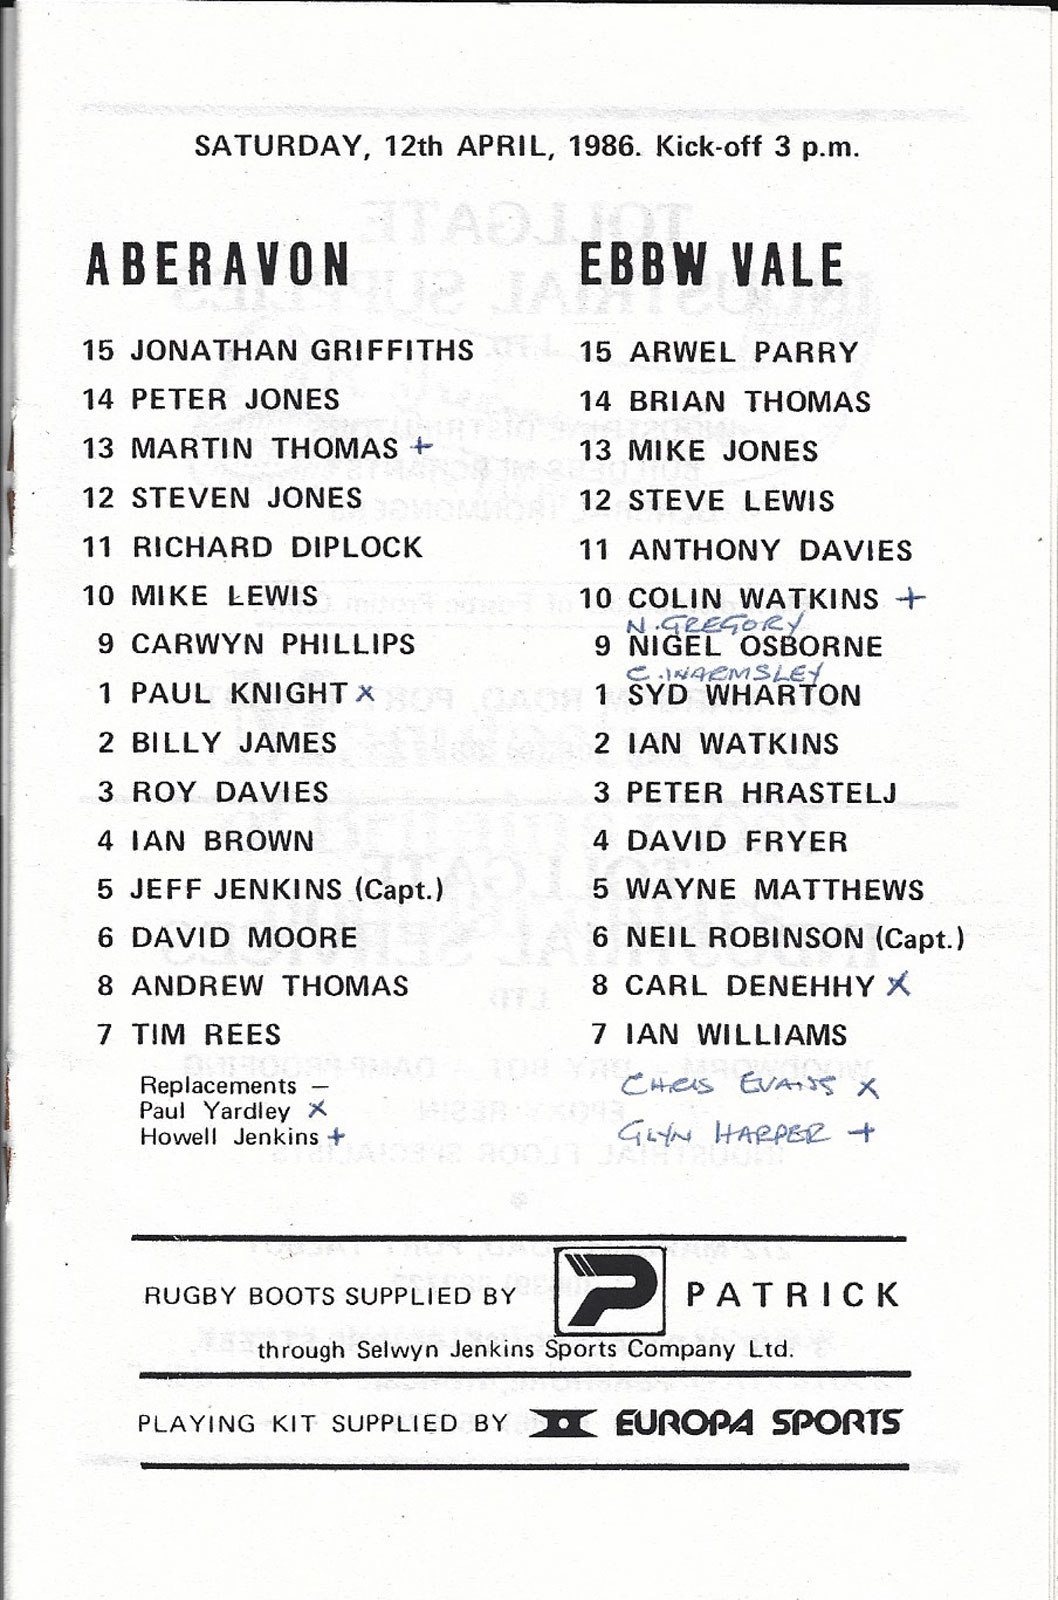 SATURDAY, 12th APRIL, 1986. Kick-off 3 p.m.
ABERAVON
15 JONATHAN GRIFFITHS
14 PETER JONES
13 MARTIN THOMAS +
12 STEVEN JONES
11 RICHARD DIPLOCK
10 MIKE LEWIS
9 CARWYN PHILLIPS
1 PAUL KNIGHT x
2 BILLY JAMES
3 ROY DAVIES
4 IAN BROWN
5 JEFF JENKINS (Capt.)
6 DAVID MOORE
8 ANDREW THOMAS
7 TIM REES
Replacements —
Paul Yardley x
Howell Jenkins +
EBBW VALE
15 ARWEL PARRY
14 BRIAN THOMAS
13 MIKE JONES
12 STEVE LEWIS
11 ANTHONY DAVIES
10 COLIN WATKINS +
N. GREGORY
9 NIGEL OSBORNE
C. WARMSLEY
1 SYD WHARTON
2 IAN WATKINS
3 PETER HRASTELJ
4 DAVID FRYER
5 WAYNE MATTHEWS
6 NEIL ROBINSON (Capt.)
8 CARL DENEHHY x
7 IAN WILLIAMS
CHRIS EVANS x
GLYN HARPER +
RUGBY BOOTS SUPPLIED BY P PATRICK
through Selwyn Jenkins Sports Company Ltd.
PLAYING KIT SUPPLIED BY EUROPA SPORTS